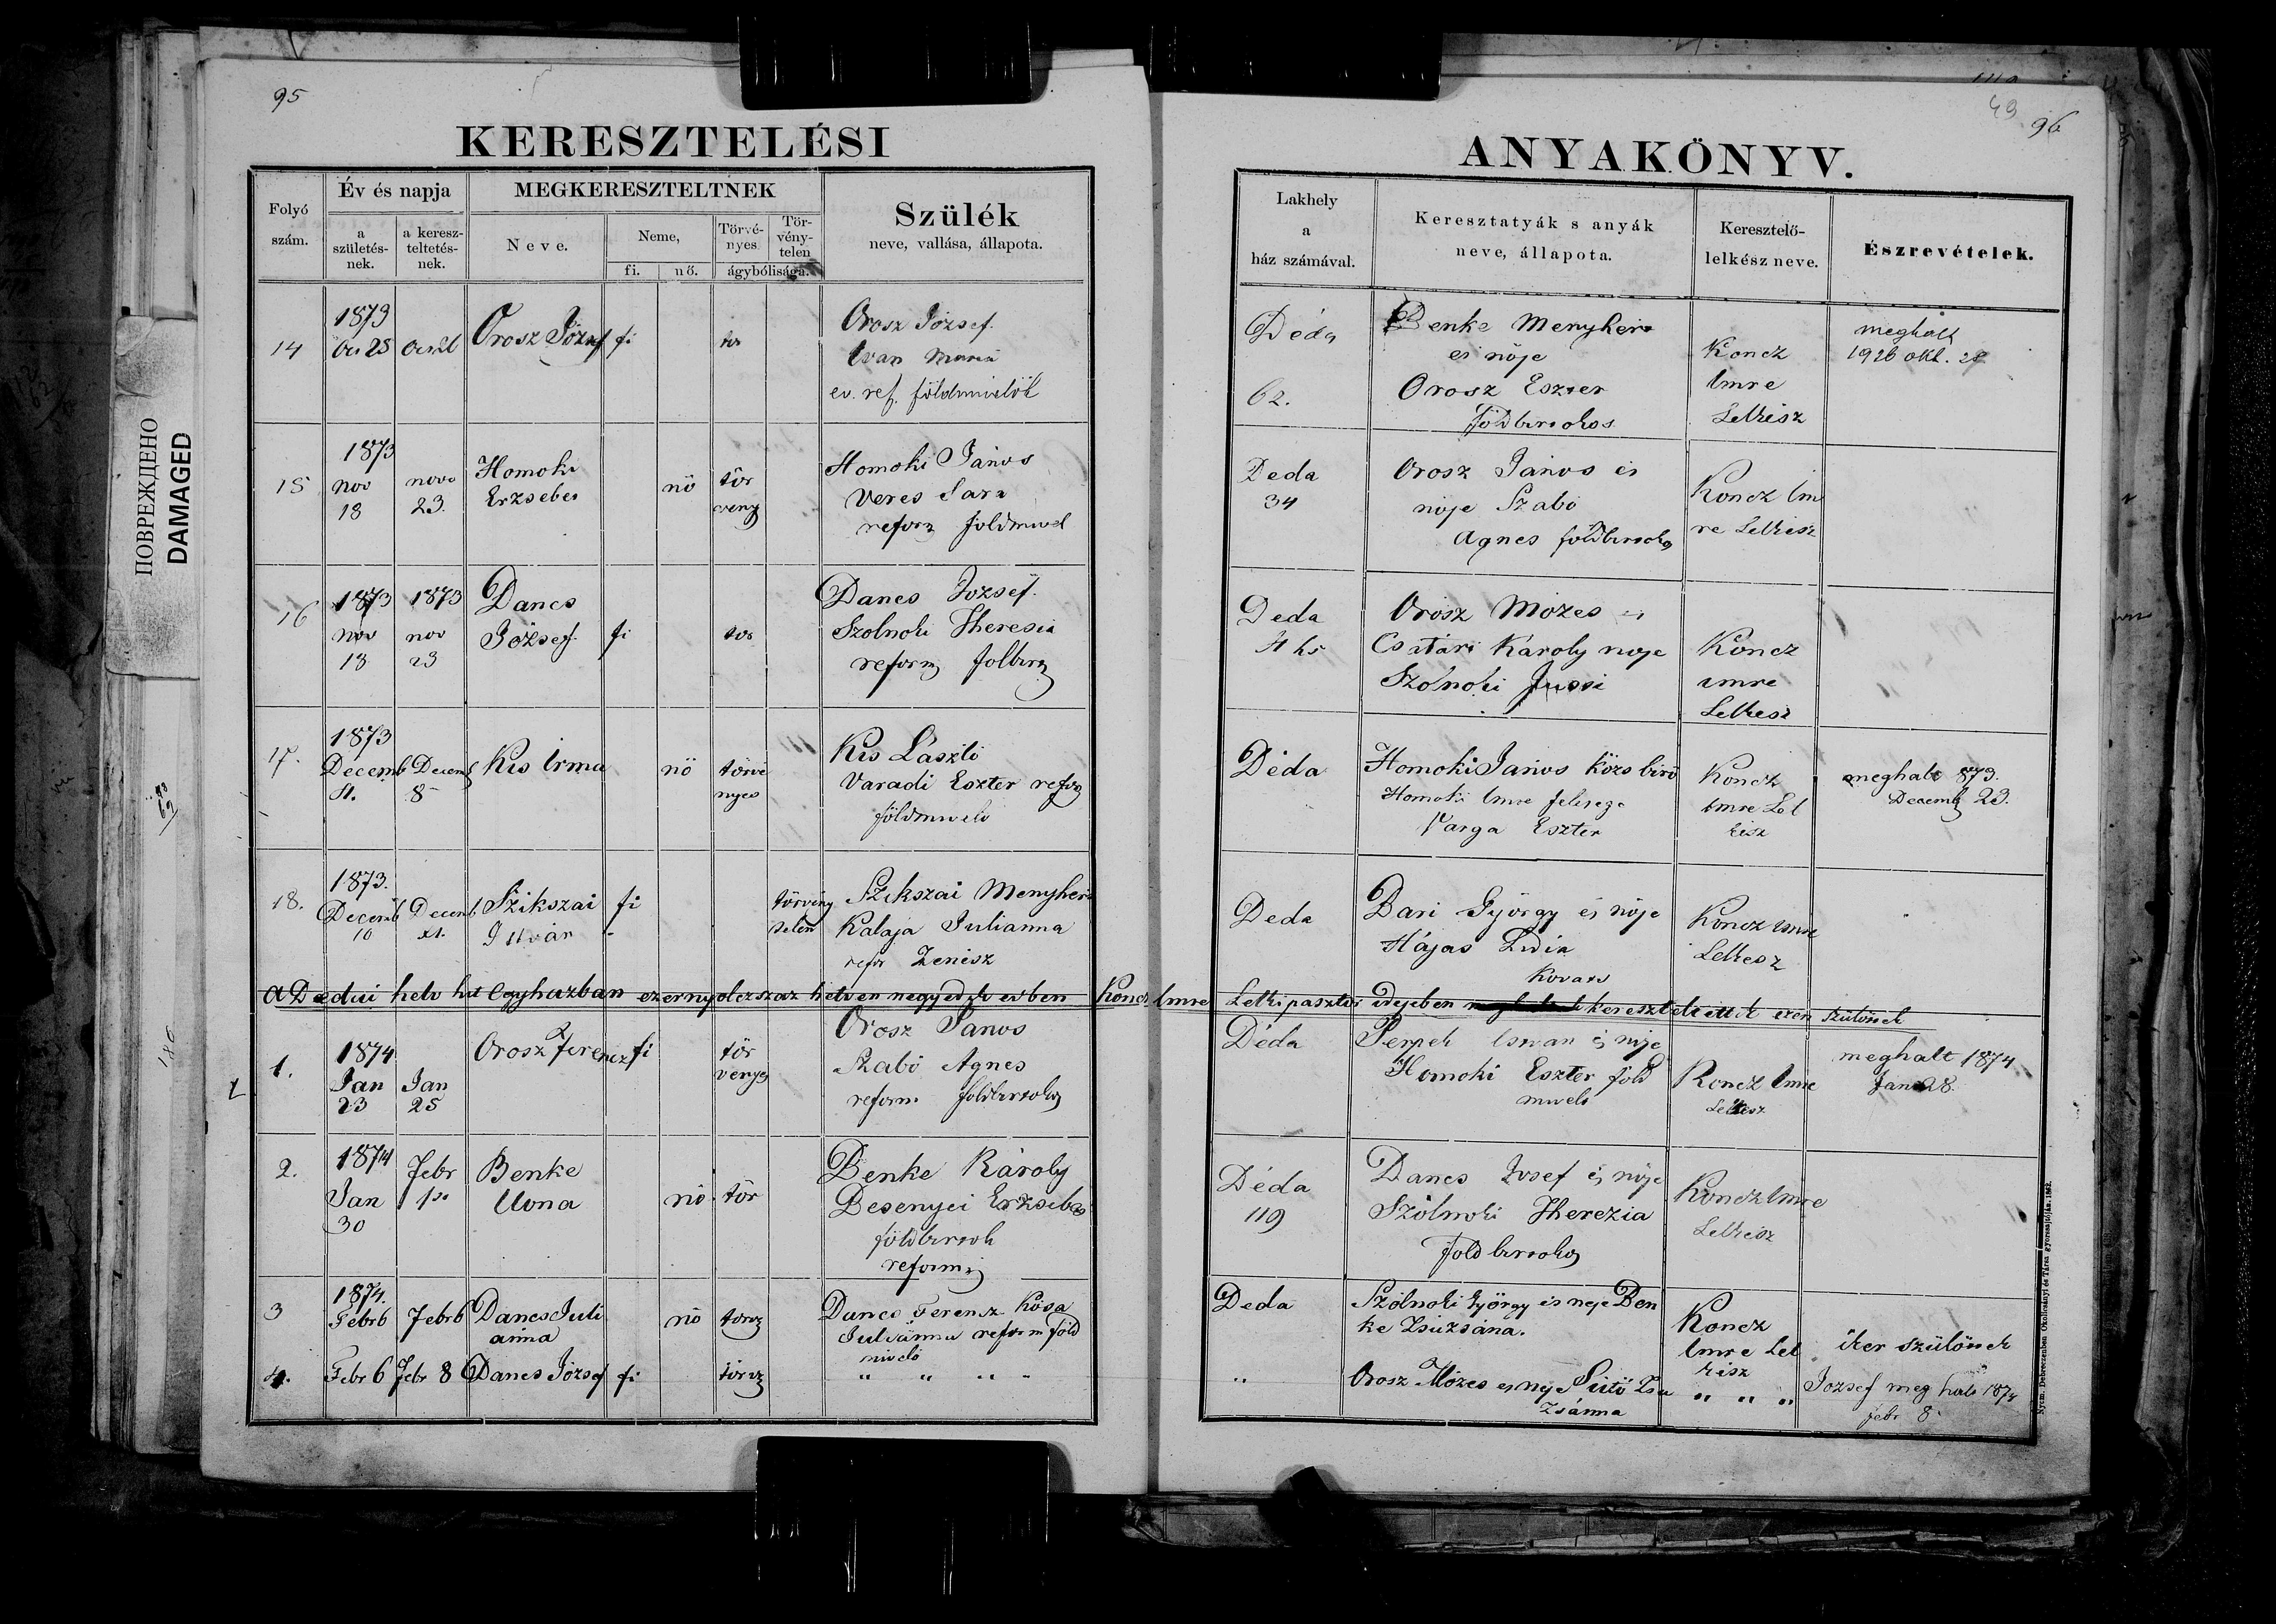 95
KERESZTELÉSI
Folyó
szám.
Év és napja
a
születés-
nek.
a keresz-
teltetés-
nek.
MEGKERESZTELTNEK
Neve.
Neme,
fi.
nő.
Törvé-
nyes
Tör-
vény-
telen
ágybólisága.
Szülék
neve, vallása, állapota.
14
1873
Oct 25
Oct 26
Orosz József
fi
tör
Orosz József.
Ivan Maria
ev. ref. földmivelők
15
1873
nov
18
novo
23.
Homoki
Erzsebet
nö
tör
veny
Homoki János
Veres Sara
reform foldmivel
16
1873
nov
18
1873
nov
23
Dancs
József.
fi
tor
Dancs Jozsef.
Szolnoki Theresia
reform folbirt
17.
1873
Decemb
4.
Decemb
8
Kis Irma
nö
törvé
nyes
Kis László
Varadi Eszter reform
földmivelö
18.
1873.
Decemb
10
Decemb
21.
Szikszai
Istvan
fi
törvény
telen
Szikszai Menyhert
Kalaja Julianna
refor Zenész
A Dedai helv hit Egyhazban ezernyolczszaz hetven negyedik evben Koncz Imre Lelkipasztor idejeben kereszteltettek ezen szülöttek
1.
1874
Jan
23
Jan
25
Orosz Ferencz
fi
tör
venyes
Orosz Janos
Szabó Agnes
reform. foldbirtokos
2.
1874
Jan
30
Febr
1ső
Benke
Ilona
nö
tör
Benke Károly
Desenyei Erzsebet
földbirtok
reform
3
1874.
Febr 6
Febr 6
Dancs Juli
anna
nö
törv
Dancs Ferencz Kósa
Julianna reform föld
mivelö
4.
Febr 6
Febr 8
Dancs József
fi
törv
" " " "
ПОВРЕЖДЕНО
DAMAGED
49
96
ANYAKÖNYV.
Lakhely
a
ház számával.
Keresztatyák s anyák
neve, állapota.
Keresztelő-
lelkész neve.
Észrevételek.
Déda
62.
Benke Menyhert
és nöje
Orosz Eszter
földbirtokos
Koncz
Imre
Lelkész
meghalt
1926 okt. 28
Deda
34
Orosz János és
nöje Szabó
Agnes földbirtokos
Koncz Im
re Lelkész
Deda
4 hs
Orosz Mózes és
Csatári Károly nöje
Szólnoki Jussi
Koncz
Imre
Lelkesz
Déda
Homoki János közs biró
Homoki Imre felesege
Varga Eszter
Koncz
Imre Lel
kész
meghalt 873.
Decemb 23.
Deda
Bari György és nöje
Hájas Lidia
Kovacs
Koncz Imre
Lelkesz
Déda
Perpek Istvan és nöje
Homoki Eszter föld
mivelö
Koncz Imre
Lelkesz
meghalt 1874
Jan 28.
Déda
119
Dancs Josef és nöje
Szólnoki Therezia
foldbirtokos
Koncz Imre
Lelkész
Deda
Szólnoki György és neje Ben
ke Zsuzsána.
Koncz
Imre Lel
kész
iker szülöttek
"
Orosz Mózes es nej Sütö Zsu
zsánna
" " "
Jozsef meg halt 1874
febr 8.
Nyom. Debreczenben Okolicsányi és Társa gyorssajtóján. 1862.